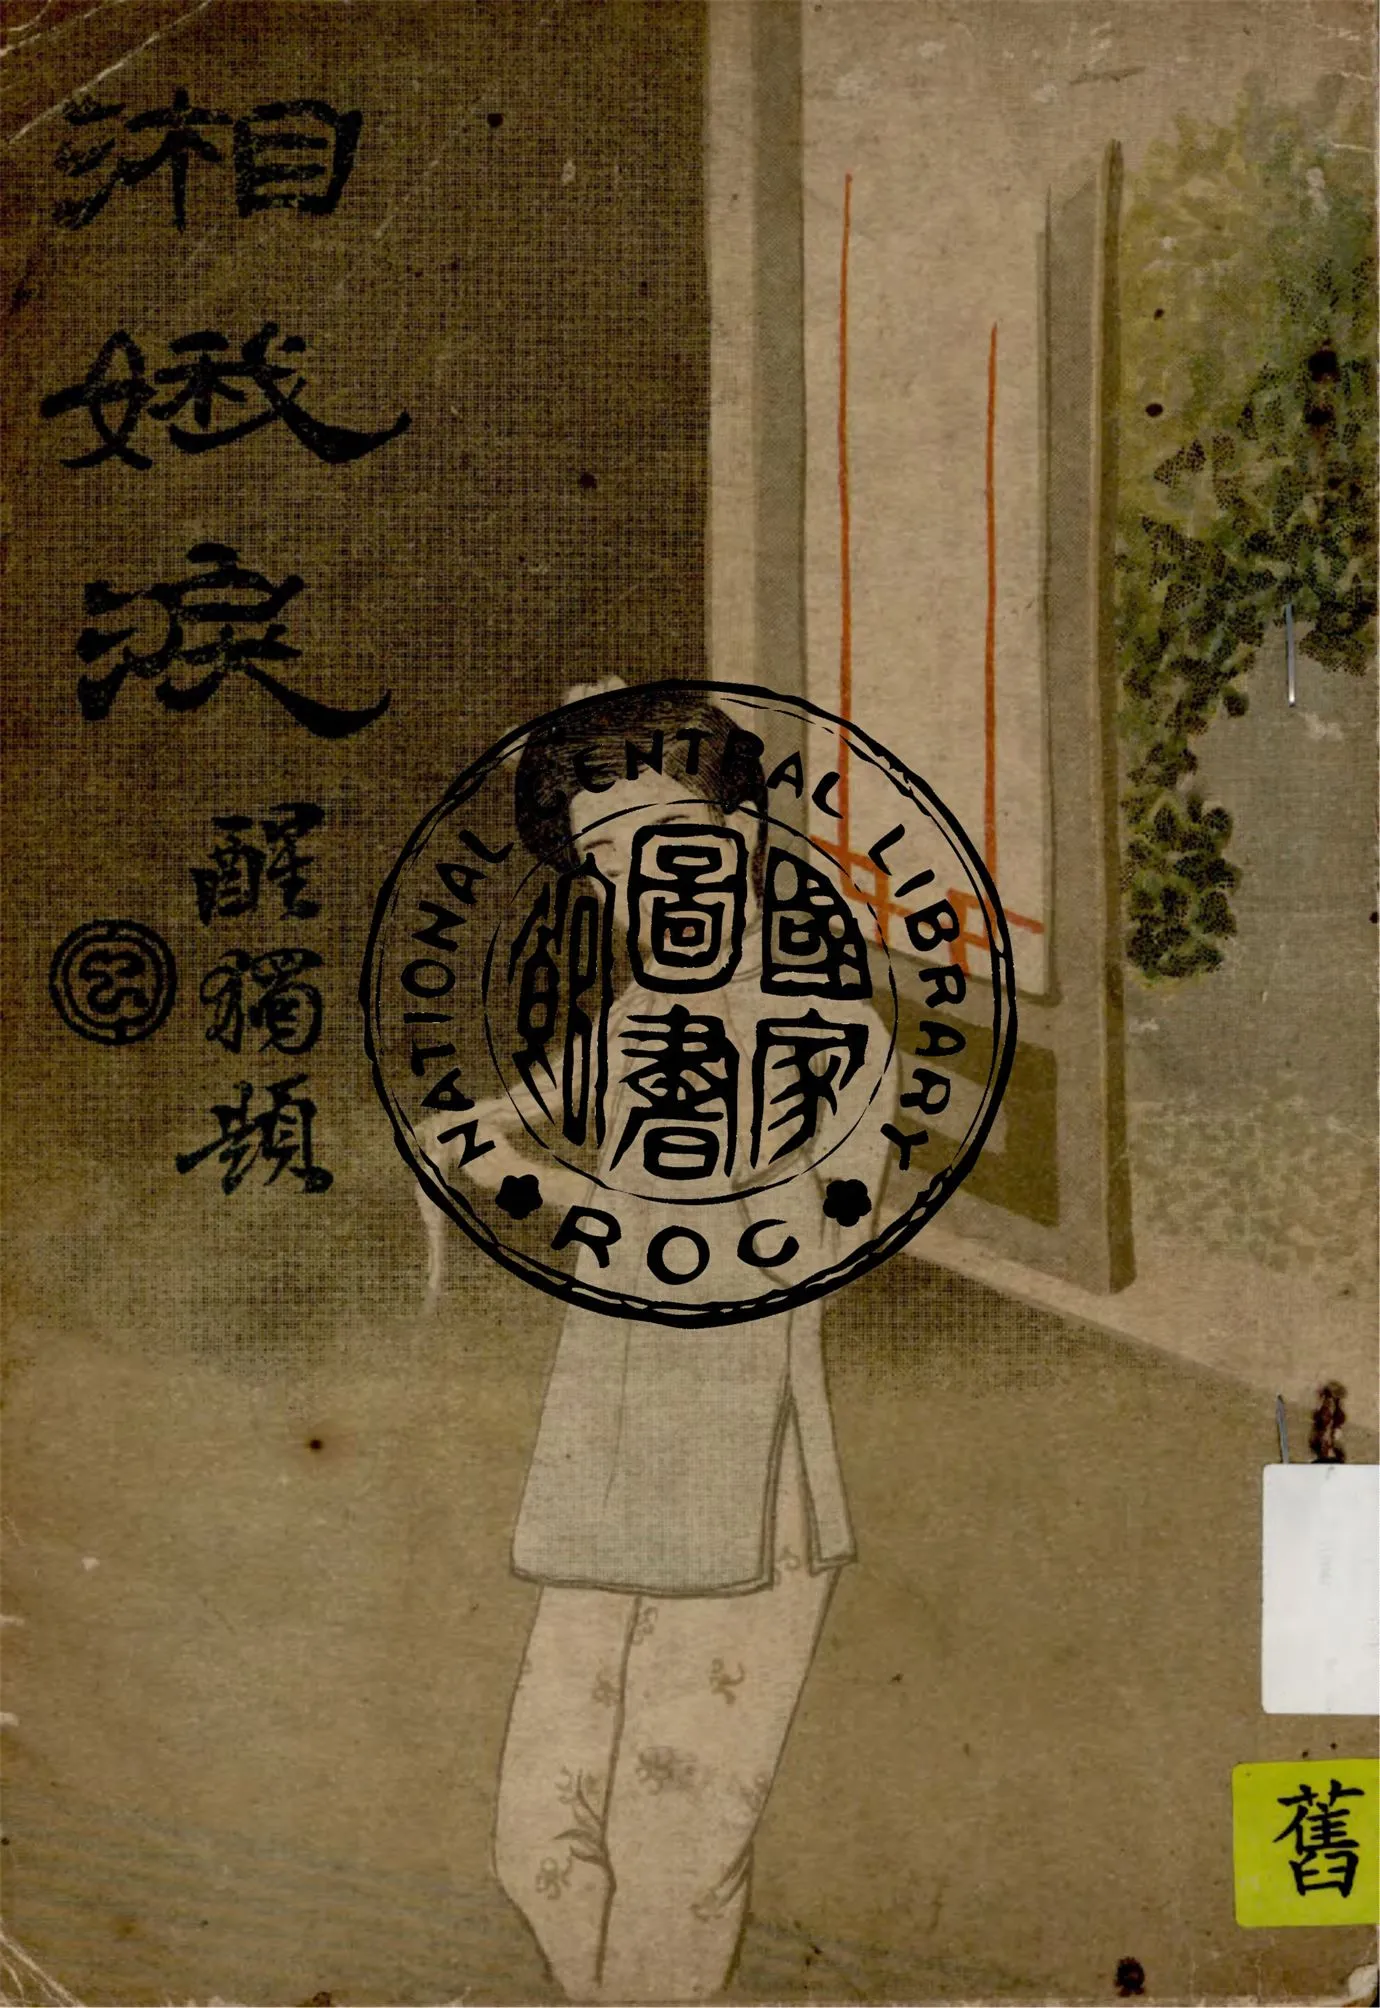 湘娥淚
醒獨題
NATIONAL CENTRAL LIBRARY
國家
圖書
館
ROC
舊